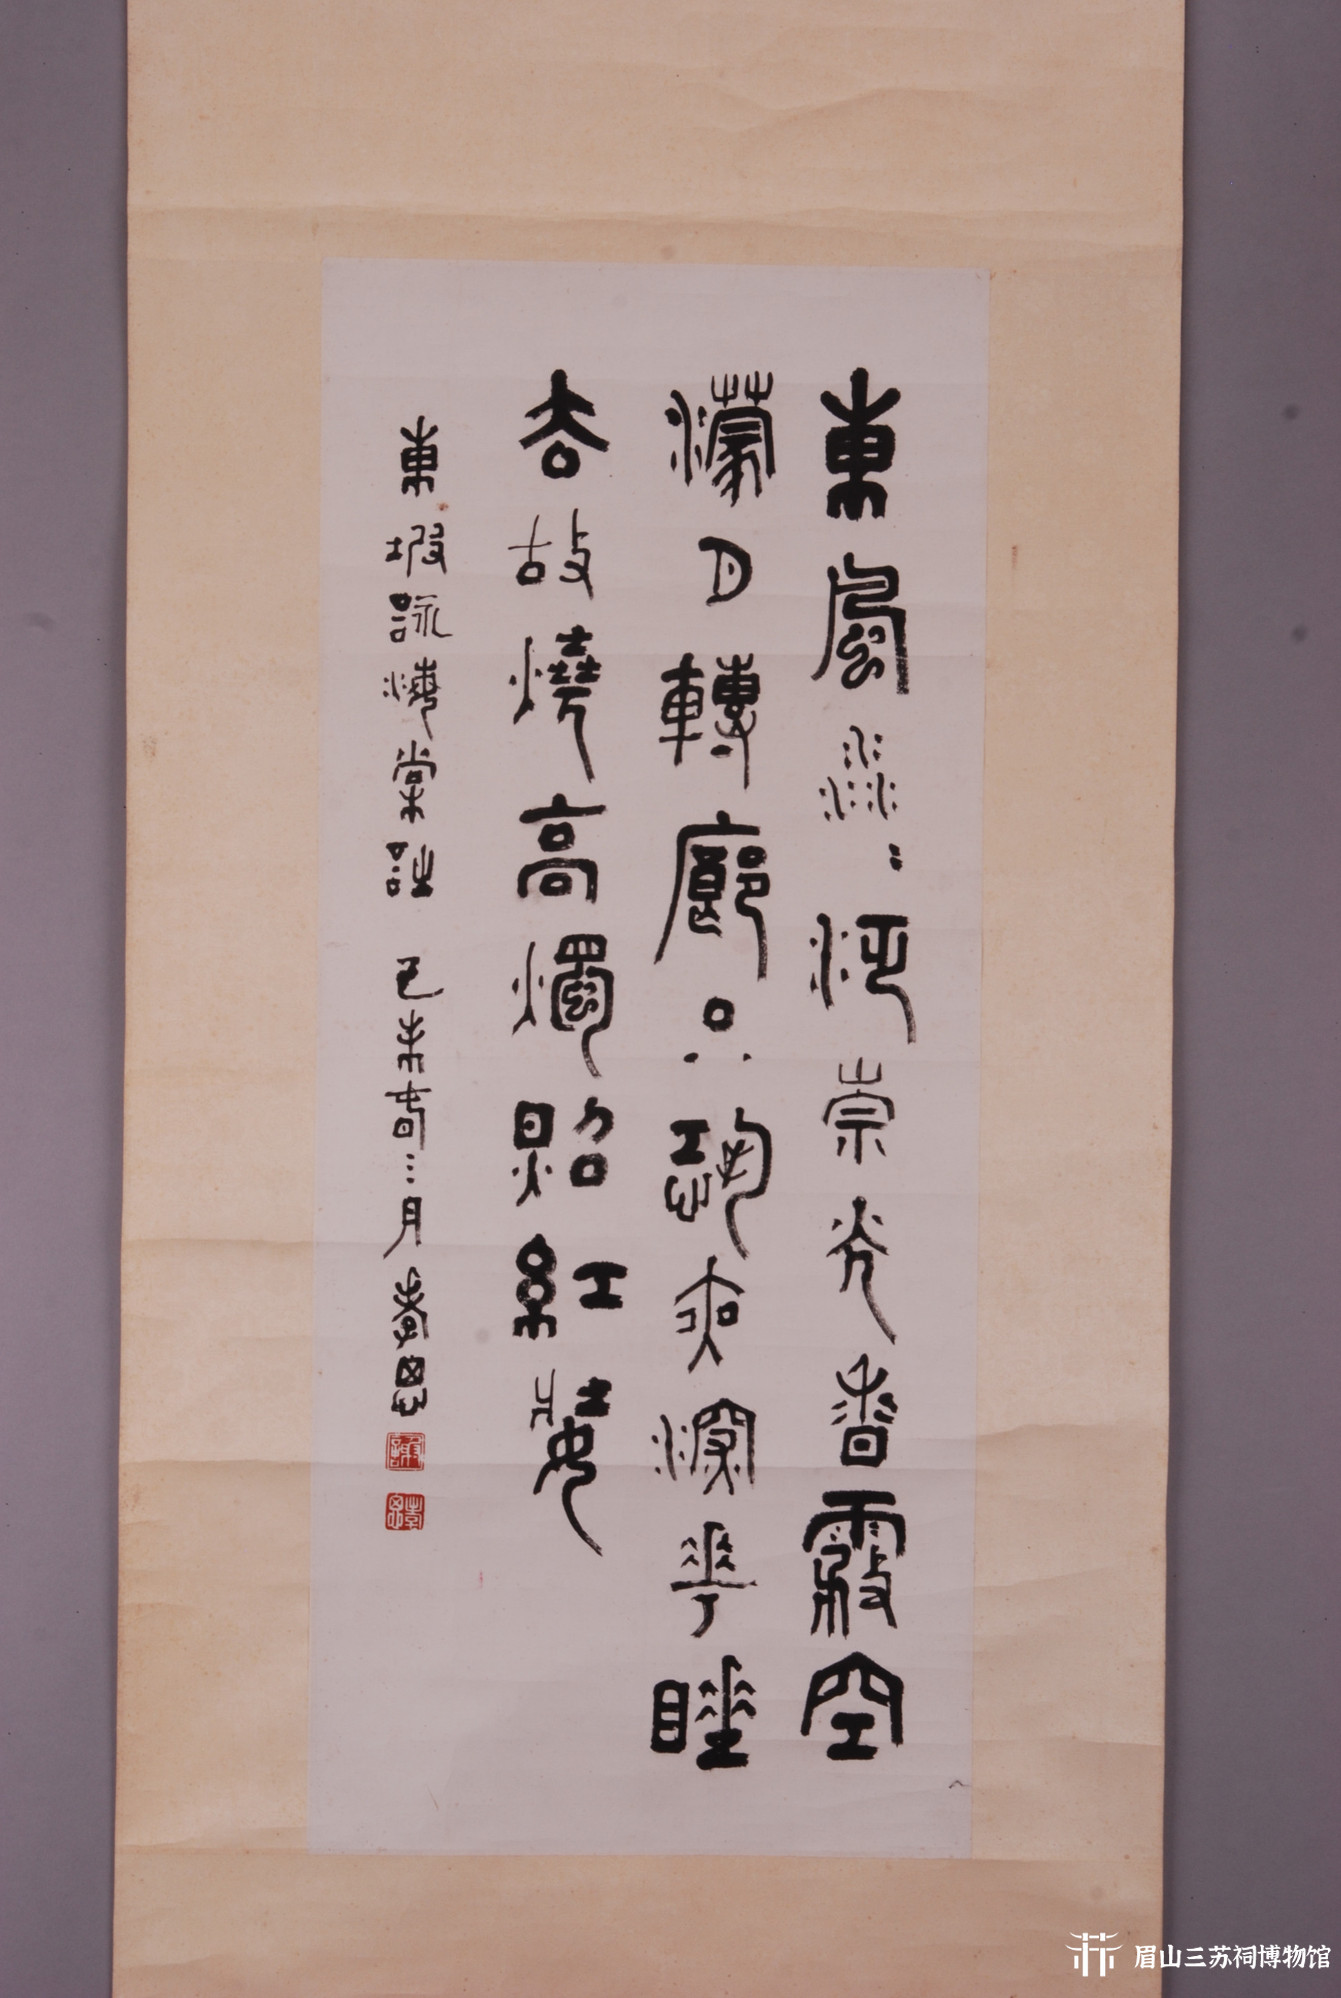 東風淼淼泛崇光香霧空
濛月轉廊只恐夜深花睡
去故燒高燭照紅妝
東坡詠海棠詩 己未春三月 孝思
謝
孝思
眉山三苏祠博物馆